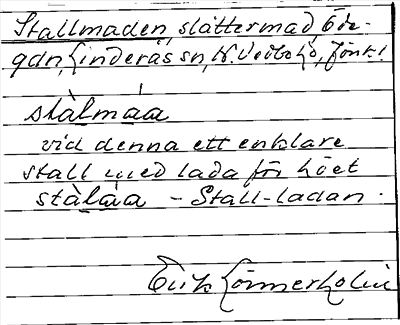 Stallmaden, slåttermad, Öde-
gdn, Linderås sn, N. Vedbo hd, Jönk.l
stàlmáa
vid denna ett enklare
stall med lada för höet
stàláa - Stall-ladan.
Erik Lönnerholm